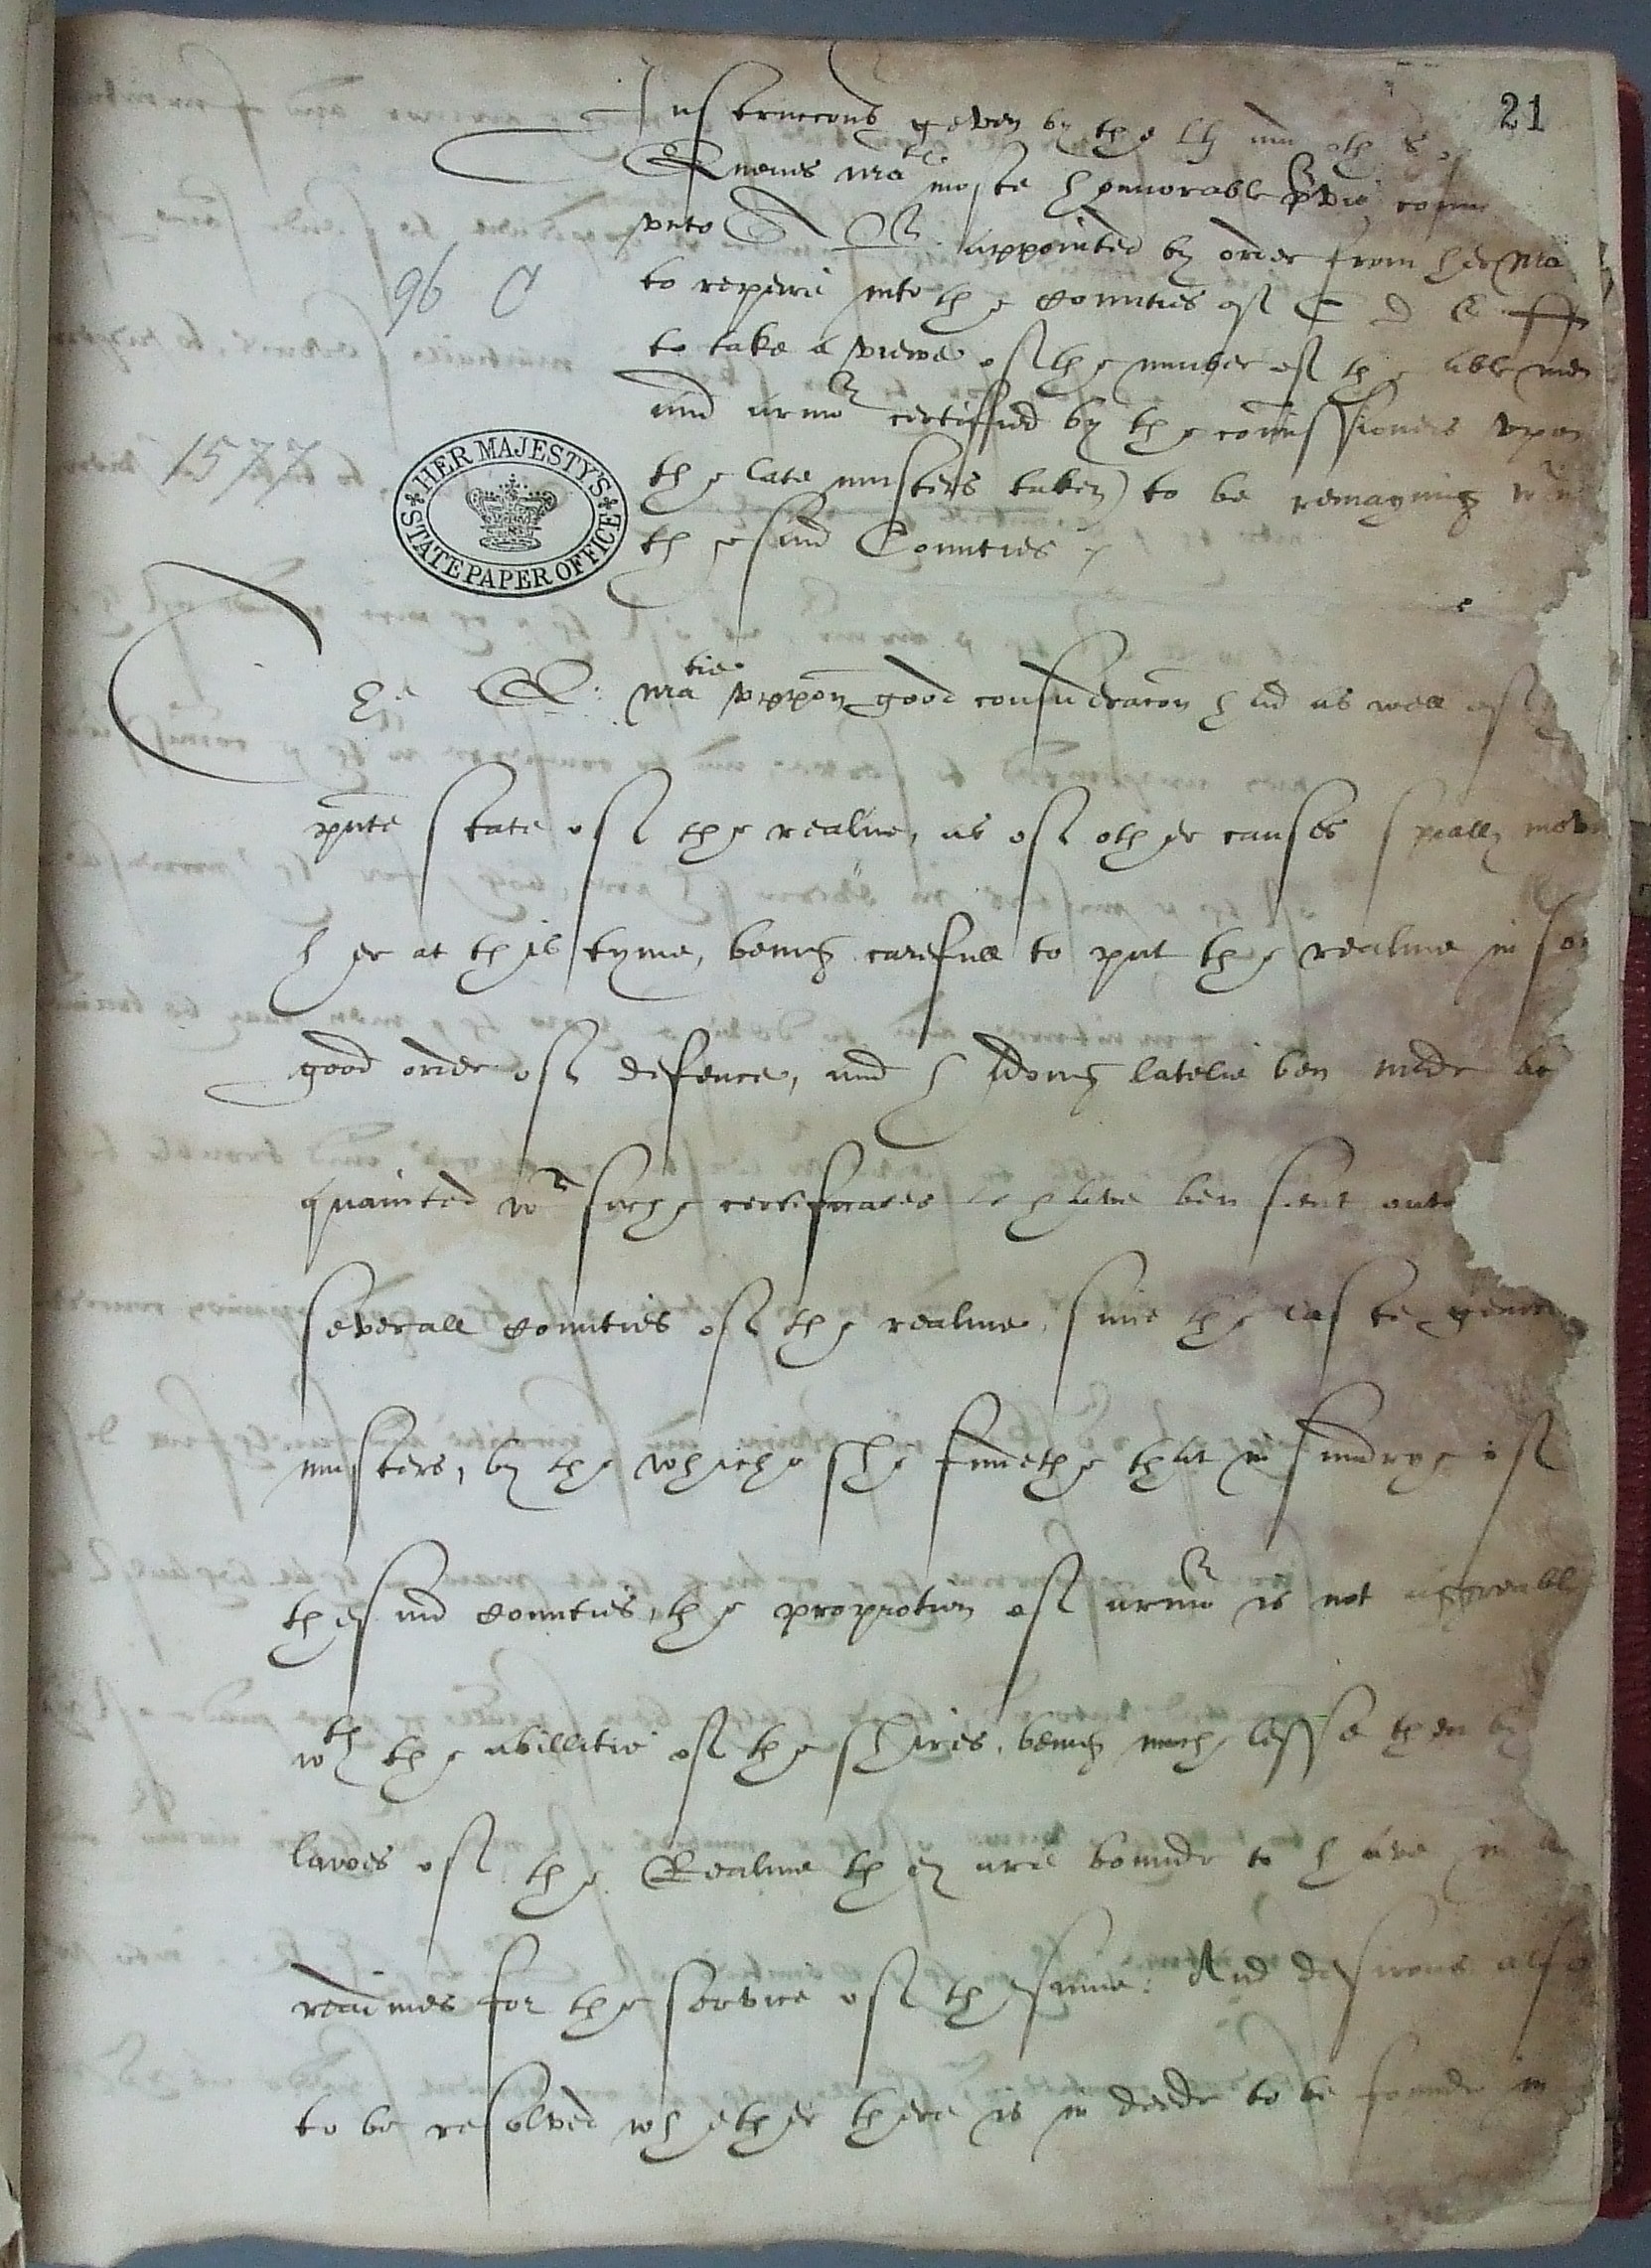 21
Instruccons geven by the ll and oth
Quenes Matie moste honnorable privie coun
vnto A B appointed by order from her Ma
to repaire into the Counties of C D E ff
to take a viewe of the number of the able men
and armor certiffied by the comissioners vpon
the late musters taken to be remayning
the said Counties
96
1577
HER MAJESTY'S STATE PAPER OFFICE
The Q: Matie vppon good consideracon had as well of
pnte state of the realme, as of other causes speally mov
her at this tyme, being carefull to put the realme in so
good order of defence, and having latelie ben made ac
quainted wth suche certificates as have ben sent
severall Counties of the realme, since the laste gene
musters, by the whiche she findethe that in sundrye of
the said Counties, the proprotion of armor is not aggreable
wth the abillitie of the shires, being muche lesse then by
lawes of the Realme they are bounde to have in
readines for the service of the same: And desirous also
to be resolved whether there is in deede to be founde in